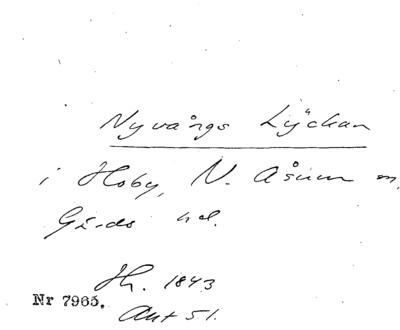 Nyvångs Lyckan
i Hoby, N. Åsum sn,
Gärds hd.
Hh. 1843
Nr 7965.
Akt 51.